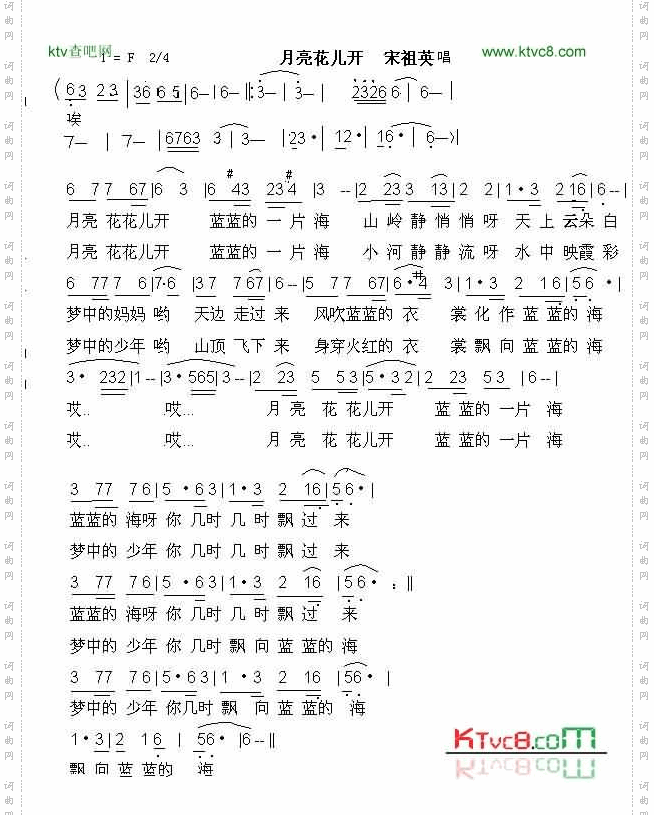 ktv查吧网
1 = F 2/4
月亮花儿开 宋祖英唱
www.ktvc8.com
(6 3 2 3 | 3 6 6 5 | 6 — | 6 — ‖: 3 — | 3 — | 2 3 2 6 6 | 6 — |
唉
7 — | 7 — | 6 7 6 3 3 | 3 — | 2 3 • | 1 2 • | 1 6 • | 6 — )|
6 7 7 6 7 | 6 3 | 6 #4 3 2 3 #4 | 3 -- | 2 2 3 3 1 3 | 2 -- | 1 • 3 2 1 6 | 6 -- |
月亮 花花儿开 蓝蓝的 一 片 海 山 岭 静 悄 悄 呀 天 上 云朵 白
月亮 花花儿开 蓝蓝的 一 片 海 小 河 静 静 流 呀 水 中 映霞 彩
6 7 7 7 6 | 7 • 6 | 3 7 7 6 7 | 6 -- | 5 7 7 6 7 | 6 • #4 3 | 1 • 3 2 1 6 | 5 6 • |
梦中的妈妈 哟 天边 走过 来 风吹蓝蓝的 衣 裳 化 作 蓝 蓝 的 海
梦中的少年 哟 山顶 飞下 来 身穿火红的 衣 裳 飘 向 蓝 蓝 的 海
3 • 2 3 2 | 1 -- | 3 • 5 6 5 | 3 -- | 2 2 3 5 5 3 | 5 • 3 2 | 2 2 3 5 3 | 6 -- |
哎.. 哎... 月 亮 花 花儿开 蓝 蓝的 一片 海
哎.. 哎... 月 亮 花 花儿开 蓝 蓝的 一片 海
3 7 7 7 6 | 5 • 6 3 | 1 • 3 2 1 6 | 5 6 • |
蓝蓝的 海呀 你 几时 几 时 飘 过 来
梦中的 少年 你 几时 几 时 飘 过 来
3 7 7 7 6 | 5 • 6 3 | 1 • 3 2 1 6 | 5 6 • :‖
蓝蓝的 海呀 你 几时 几 时 飘 过 来
梦中的 少年 你 几时 飘 向 蓝 蓝的 海
3 7 7 7 6 | 5 • 6 3 | 1 • 3 2 1 6 | 5 6 • |
梦中的 少年 你几时 飘 向 蓝 蓝的 海
1 • 3 | 2 1 6 | 5 6 • | 6 -- ‖
飘 向 蓝 蓝的 海
KTvc8.com